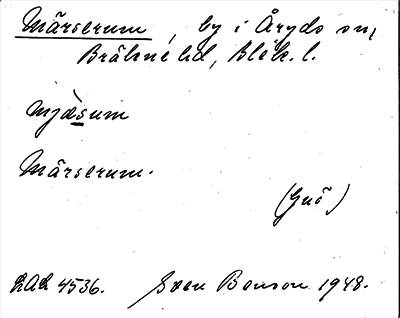 Märserum, by i Åryds sn,
Bräkne hd, Blek. l.
mjæ̀sum
Märserum.
(Guö)
LAL 4536. Sven Benson 1948.